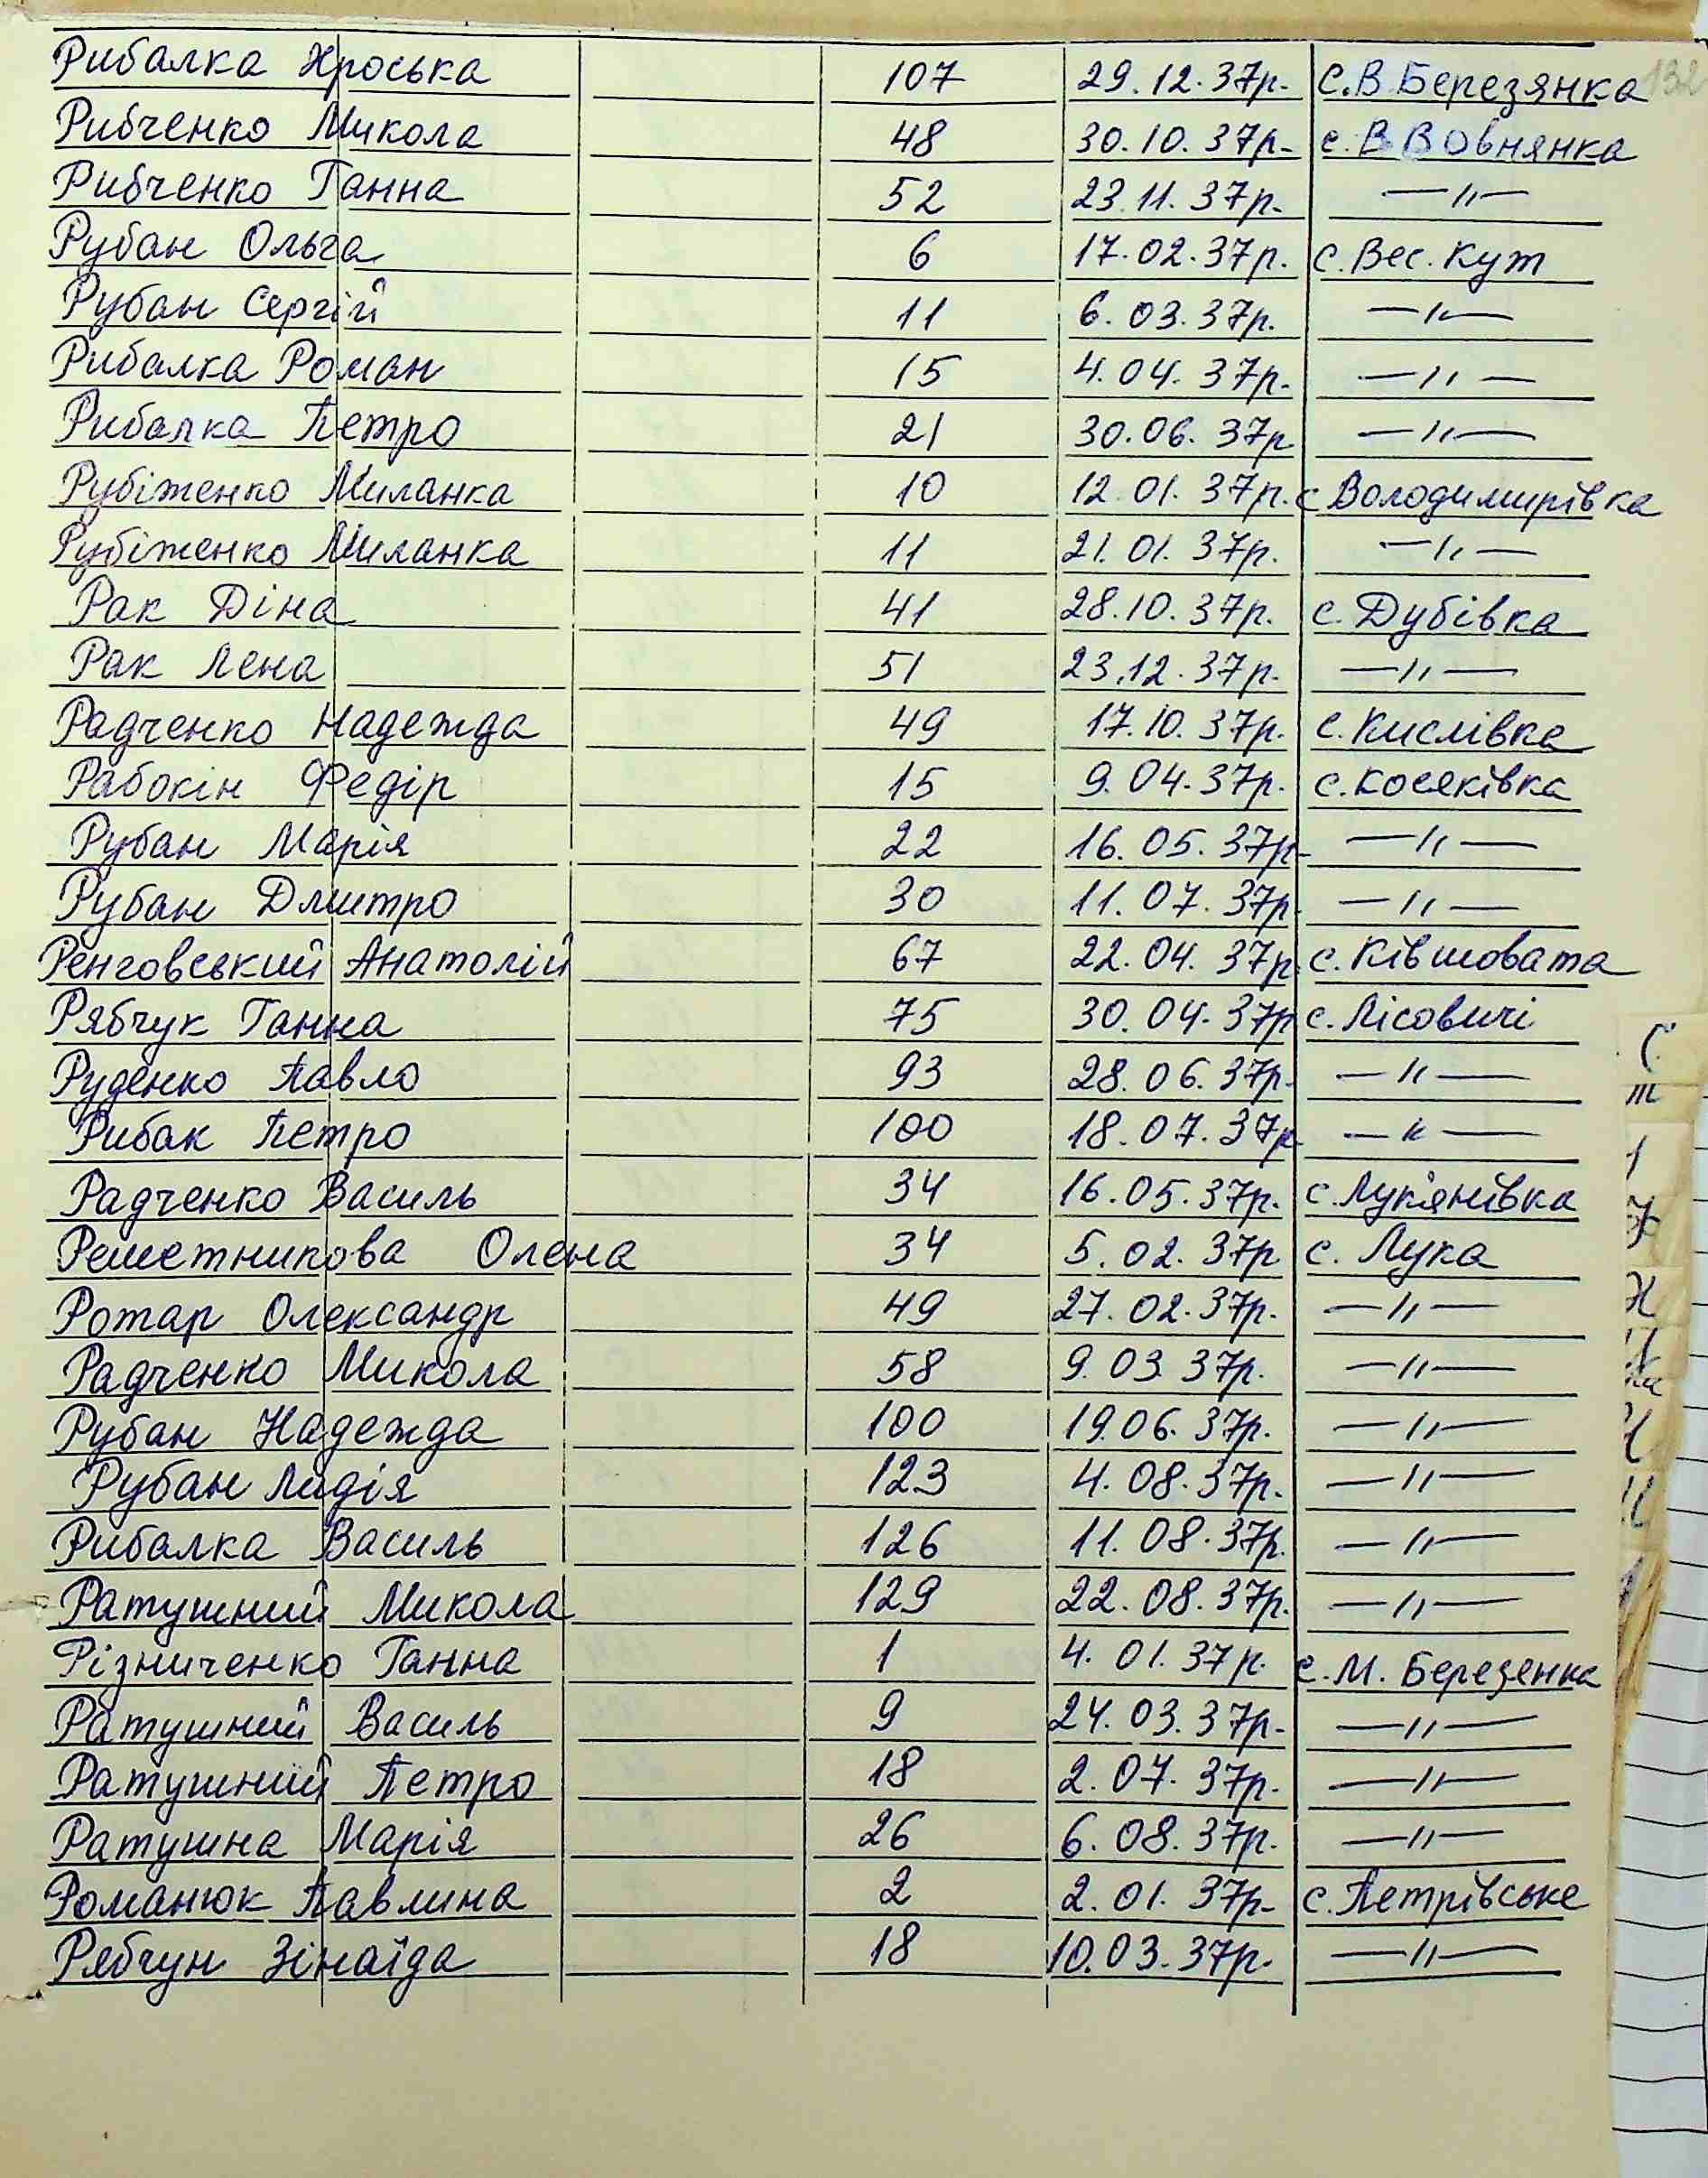 132
Рибалка Хроська 107 29.12.37р. с.В Березянка
Рибченко Микола 48 30.10.37р. с.В Вовнянка
Рибченко Ганна 52 23.11.37р. —"—
Рубан Ольга 6 17.02.37р. с.Вес.Кут
Рубан Сергій 11 6.03.37р. —"—
Рибалка Роман 15 4.04.37р. —"—
Рибалка Петро 21 30.06.37р —"—
Рубіженко Миланка 10 12.01.37р. с Володимирівка
Рубіженко Миланка 11 21.01.37р. —"—
Рак Діна 41 28.10.37р. с.Дубівка
Рак Лена 51 23.12.37р. —"—
Радченко Надежда 49 17.10.37р. с.Кислівка
Рабокін Федір 15 9.04.37р. с.Косяківка
Рубан Марія 22 16.05.37р. —"—
Рубан Дмитро 30 11.07.37р. —"—
Ренговський Анатолій 67 22.04.37р. с.Ківшовата
Рябчук Ганна 75 30.04.37р с.Лісовичі
Руденко Павло 93 28.06.37р. —"—
Рибак Петро 100 18.07.37р. —"—
Радченко Василь 34 16.05.37р. с.Лук'янівка
Решетникова Олена 34 5.02.37р с. Лука
Ротар Олександр 49 27.02.37р. —"—
Радченко Микола 58 9.03.37р. —"—
Рубан Надежда 100 19.06.37р. —"—
Рубан Лидія 123 4.08.37р. —"—
Рибалка Василь 126 11.08.37р. —"—
Ратушний Микола 129 22.08.37р. —"—
Різниченко Ганна 1 4.01.37р. с.М. Березенка
Ратушний Василь 9 24.03.37р. —"—
Ратушний Петро 18 2.07.37р. —"—
Ратушна Марія 26 6.08.37р. —"—
Романюк Павлина 2 2.01.37р. с.Петрівське
Рябчун Зінаїда 18 10.03.37р. —"—